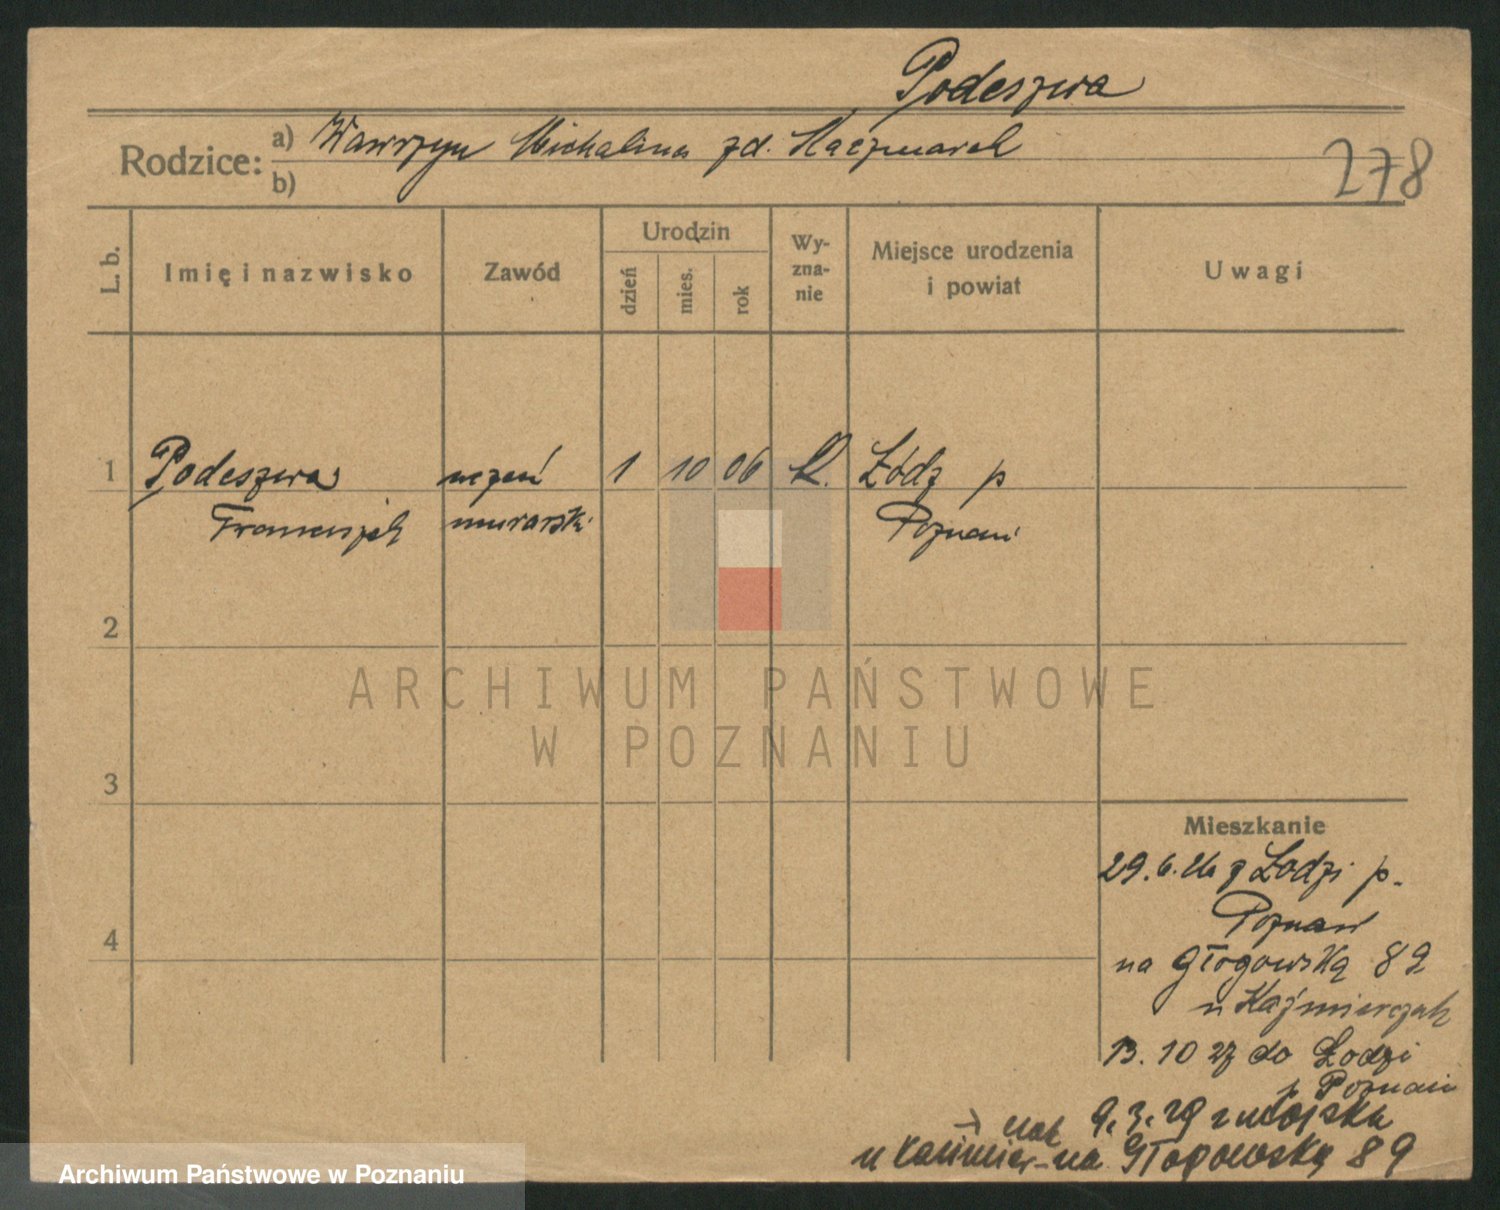 Podeszwa
Rodzice: a) Wawrzyn Michalina zd. Kaczmarek
b)
278
L. b.
Imię i nazwisko
Zawód
Urodzin
dzień
mies.
rok
Wy-
zna-
nie
Miejsce urodzenia
i powiat
Uwagi
1 Podeszwa uczeń 1 10 06 k. Łódź p
Franciszek murarski Poznań
2
3
4
ARCHIWUM PAŃSTWOWE
W POZNANIU
Mieszkanie
29.6.26 z Łodzi p.
Poznań
na Głogowską 89
u Kaźmierczak
13. 10 27 do Łodzi
p Poznań
9.3.29 z wojska
u Kaźmier- na Głogowską 89
czak
Archiwum Państwowe w Poznaniu